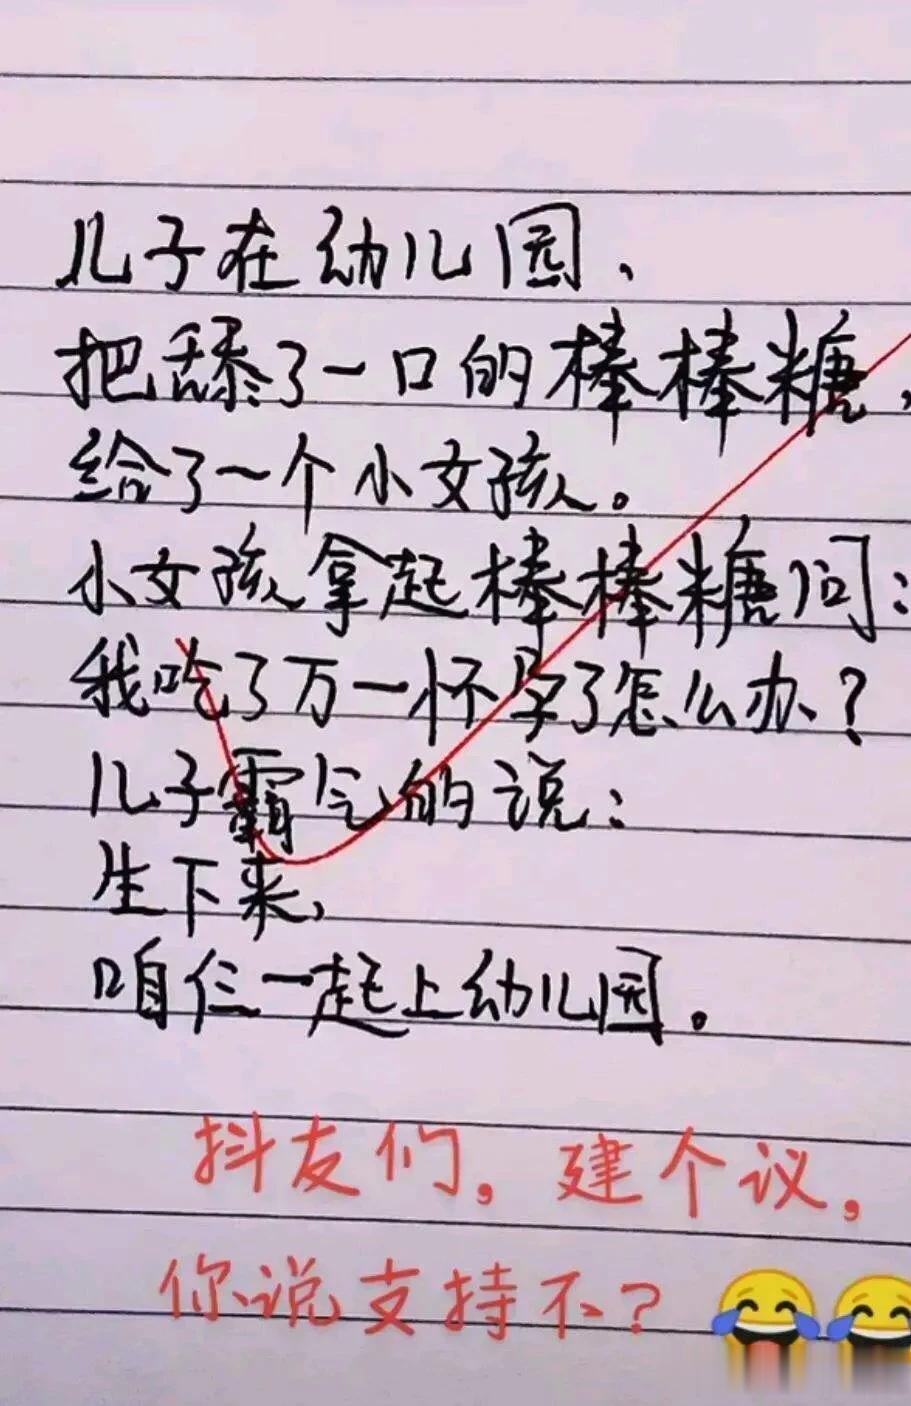 儿子在幼儿园、
把舔了一口的棒棒糖,
给了一个小女孩。
小女孩拿起棒棒糖问:
我吃了万一怀孕了怎么办?
儿子霸气的说:
生下来,
咱仨一起上幼儿园。
抖友们。建个议,
你说支持不?